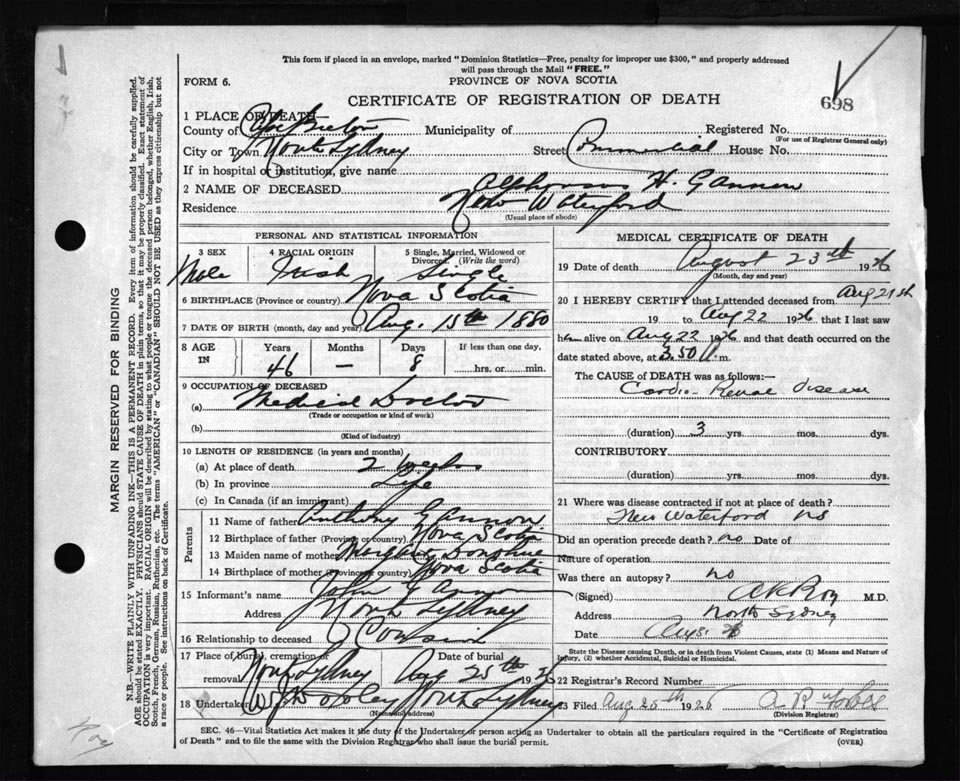 This form if placed in an envelope, marked "Dominion Statistics—Free, penalty for improper use $300," and properly addressed
will pass through the Mail "FREE."
FORM 6.
PROVINCE OF NOVA SCOTIA
CERTIFICATE OF REGISTRATION OF DEATH
698
1 PLACE OF DEATH
County of Cape Breton Municipality of Registered No.
(For use of Registrar General only)
City or Town North Sydney Street Commercial House No.
If in hospital or institution, give name
2 NAME OF DECEASED Alphonsus H. Gannon
Residence New Waterford
(Usual place of abode)
PERSONAL AND STATISTICAL INFORMATION
3 SEX 4 RACIAL ORIGIN 5 Single, Married, Widowed or
Divorced (Write the word)
Male Irish Single
6 BIRTHPLACE (Province or country) Nova Scotia
7 DATE OF BIRTH (month, day and year) Aug. 15th 1880
8 AGE IN Years Months Days If less than one day,
46 — 8 hrs. or min.
9 OCCUPATION OF DECEASED
(a) Medical Doctor
(Trade or occupation or kind of work)
(b)
(Kind of industry)
10 LENGTH OF RESIDENCE (in years and months)
(a) At place of death 2 weeks
(b) In province Life
(c) In Canada (if an immigrant)
Parents
11 Name of father Anthony Gannon
12 Birthplace of father (Province or country) Nova Scotia
13 Maiden name of mother Margaret Donahue
14 Birthplace of mother (Province or country) Nova Scotia
15 Informant's name John Gannon
Address North Sydney
16 Relationship to deceased Cousin
17 Place of burial, cremation or Date of burial
removal North Sydney Aug 25th 1926
18 Undertaker North Sydney
(Name and address)
MEDICAL CERTIFICATE OF DEATH
19 Date of death August 23rd 1926
(Month, day and year)
20 I HEREBY CERTIFY that I attended deceased from Aug 21st
19 to Aug 22 1926 that I last saw
him alive on Aug 22 1926 and that death occurred on the
date stated above, at 3.50 A.m.
The CAUSE of DEATH was as follows:
Cardio-Renal disease
(duration) 3 yrs. mos. dys.
CONTRIBUTORY
(duration) yrs. mos. dys.
21 Where was disease contracted if not at place of death?
New Waterford NS
Did an operation precede death? no Date of
Nature of operation
Was there an autopsy? no
(Signed) M.D.
Address North Sydney
Date Aug. 26
State the Disease causing Death, or in death from Violent Causes, state (1) Means and Nature of
Injury, (2) whether Accidental, Suicidal or Homicidal.
22 Registrar's Record Number
23 Filed Aug 25th 1926
(Division Registrar)
SEC. 46—Vital Statistics Act makes it the duty of the Undertaker or person acting as Undertaker to obtain all the particulars required in the "Certificate of Registration
of Death" and to file the same with the Division Registrar who shall issue the burial permit.
(OVER)
MARGIN RESERVED FOR BINDING
N.B.—WRITE PLAINLY WITH UNFADING INK—THIS IS A PERMANENT RECORD. Every item of information should be carefully supplied.
AGE should be stated EXACTLY. PHYSICIANS should STATE CAUSE OF DEATH in plain terms, so that it may be properly classified. Exact statement of
OCCUPATION is very important. RACIAL ORIGIN will be described by stating to what people or tongue the deceased person belonged, whether English, Irish,
Scotch, French, German, Russian, Ruthenian, etc. The terms "AMERICAN" or "CANADIAN" SHOULD NOT BE USED as they express citizenship but not
a race or people. See instructions on back of Certificate.